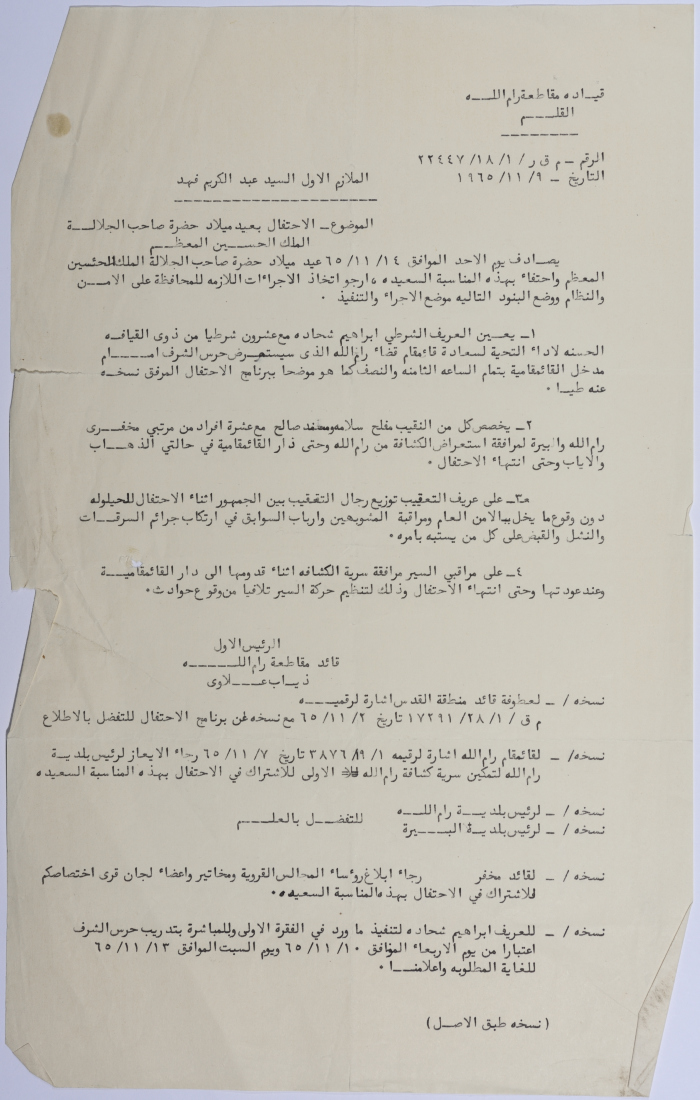 قيـاده مقاطعة رام اللـــه
القلـــم
الرقم ـ م ق ر / ١/ ١٨/ ٢٢٤٤٧
التاريخ ـ ٩/ ١١/ ١٩٦٥
الملازم الاول السيد عبد الكريم فهد
الموضوع ـ الاحتفال بعيد ميلاد حضرة صاحب الجلالــة
الملك الحسـين المعظـم
يصادف يوم الاحد الموافق ١٤/ ١١/ ٦٥ عيد ميلاد حضرة صاحب الجلالة الملك الحسين
المعظم واحتفاء بهذه المناسبة السعيده ، ارجو اتخاذ الاجراءات اللازمه للمحافظة على الامـن
والنظام ووضع البنود التاليه موضع الاجراء والتنفيذ ٠
١ـ يعـين العريف الشرطي ابراهيم شحاده مع عشرون شرطيا من ذوى القيافه
الحسنه لاداء التحية لسعادة قائمقام قضاء رام الله الذى سيستعرض حرس الشرف امــام
مدخل القائمقامية بتمام الساعه الثامنه والنصف كما هو موضحا ببرنامج الاحتفال المرفق نسخـه
عنه طيـا ٠
٢ـ يخصص كل من النقيب مفلح سلامه ومحمد صالح مع عشرة افراد من مرتبي مخفـرى
رام الله والبيرة لمرافقة استعراض الكشافة من رام الله وحتى دار القائمقامية في حالتي الذهـاب
والاياب وحتى انتهاء الاحتفال ٠
٣ـ على عريف التعقيب توزيع رجال التعقيب بين الجمهور اثناء الاحتفال للحيلوله
دون وقوع ما يخل بالامن العام ومراقبة المشوبهين وارباب السوابق في ارتكاب جرائم السرقـات
والنشل والقبض على كل من يستبه بامره ٠
٤ـ على مراقبي السير مرافقة سرية الكشافه اثناء قدومها الى دار القائمقاميــة
وعند عودتها وحتى انتهاء الاحتفال وذلك لتنظيم حركة السير تلافيا من وقوع حوادث ٠
الرئيس الاول
قائد مقاطعة رام اللـــه
ذياب عــلاوى
نسخه / ـ لعطوفة قائد منطقة القدس اشارة لرقميـــه
م ق / ١/ ٢٨/ ١٧٢٩١ تاريخ ٢/ ١١/ ٦٥ مع نسخه عن برنامج الاحتفال للتفضل بالاطلاع
نسخه/ ـ لقائمقام رام الله اشارة لرقيمه ١/ ٩/ ٣٨٧٦ تاريخ ٧/ ١١/ ٦٥ رجاء الايعاز لرئيس بلديـة
رام الله لتمكين سرية كشافة رام الله الاولى للاشتراك في الاحتفال بهذه المناسبة السعيده
نسخه / ـ لرئيس بلديـة رام اللـه
للتفضـل بالعلــم
نسخه / ـ لرئيس بلديـة البــيرة
نسخه / ـ لقائد مخفر رجاء ابلاغ روءساء المجالس القروية ومخاتير واعضاء لجان قرى اختصاصكم
للاشتراك في الاحتفال بهذه المناسبة السعيده ٠
نسخه / ـ للعريف ابراهيم شحاده لتنفيذ ما ورد في الفقرة الاولى وللمباشرة بتدريب حرس الشرف
اعتبارا من يوم الاربعاء الموافق ١٠/ ١١/ ٦٥ ويوم السبت الموافق ١٣/ ١١/ ٦٥
للغاية المطلوبه واعلامنـا ٠
( نسخه طبق الاصـل )